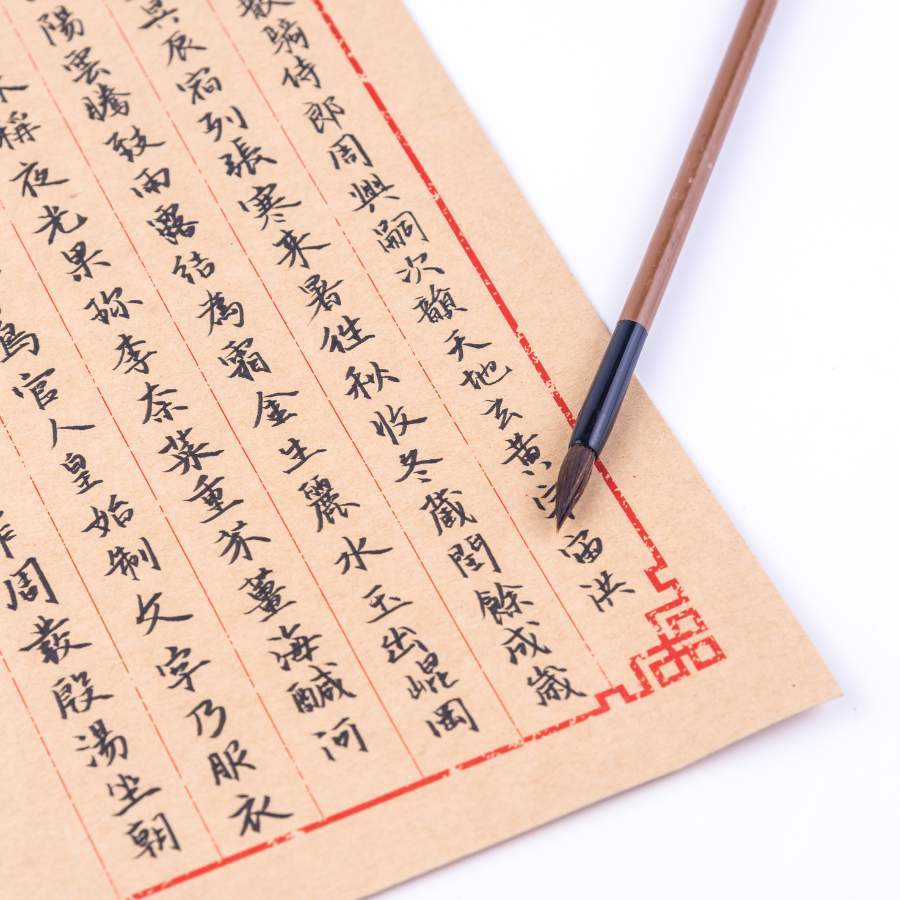 散騎侍郎周興嗣次韻天地玄黃宇宙洪
昃辰宿列張寒来暑往秋收冬藏閏餘成歲
陽雲騰致雨露結為霜金生麗水玉出崐岡
稱夜光果珎李奈菜重芥薑海醎河
鳥官人皇始制文字乃服衣
周發殷湯坐朝